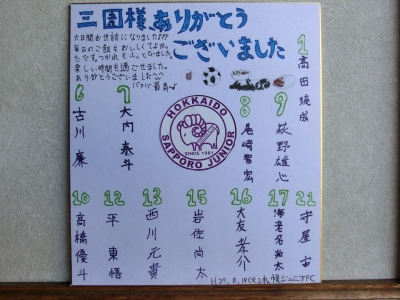 三国様ありがとう
ございました
六日間お世話になりました!!
毎日のご飯もおいしくてよかっ
たです。つかれもふっとびました。
楽しい時間を過ごせました。
ありがとうございました^^
1
高田 琉成
6
古川 廉
7
大内 泰斗
HOKKAIDO
SAPPORO JUNIOR
SINCE 1981
8
尾崎智宏
9
萩野雄心
10
高橋優斗
12
平 東悟
13
西川 元貴
15
岩佐尚太
16
大友 孝介
17
海老名裕太
21
守屋 宙
札幌ジュニアFC